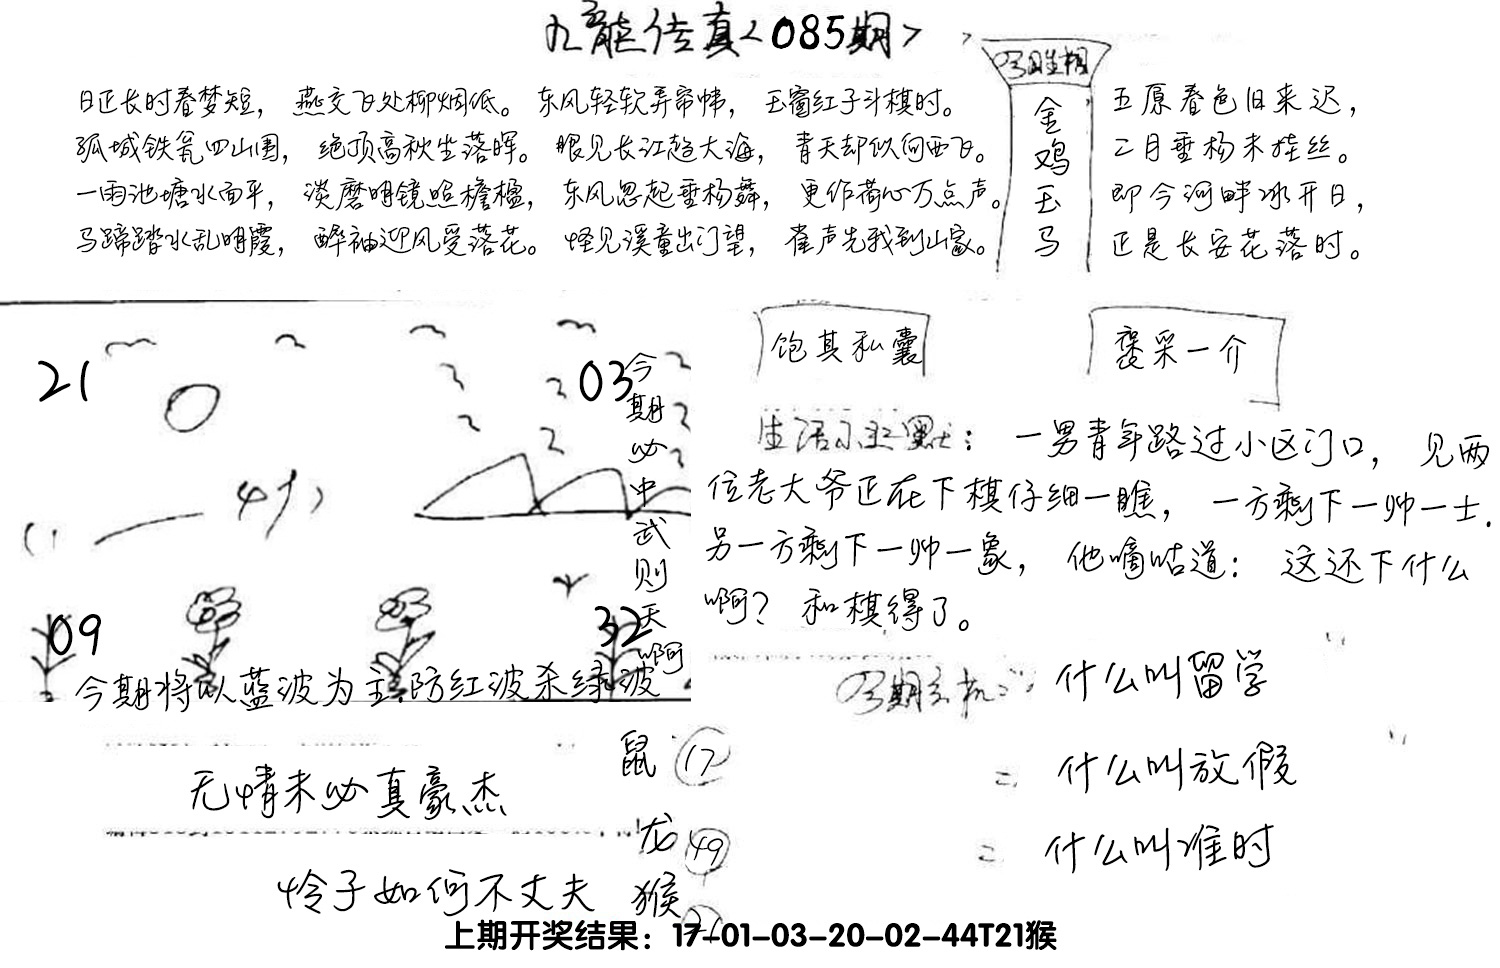 九龍传真<085期>
日正长时春梦短，燕交飞处柳烟低。东风轻软弄帘帏，玉窗红子斗棋时。
孤城铁瓮四山围，绝顶高秋坐落晖。眼见长江趋大海，青天却似向西飞。
一雨池塘水面平，淡磨明镜照檐楹，东风忽起垂杨舞，更作荷心万点声。
马蹄踏水乱明霞，醉袖迎风受落花。怪见溪童出门望，雀声先我到山家。
金
鸡
玉
马
五原春色旧来迟，
二月垂杨未挂丝。
即今河畔冰开日，
正是长安花落时。
21
03
09
32
今期必中武则天啊
今期将以蓝波为主防红波杀绿波
饱其私囊
褎采一介
生活小幽默：一男青年路过小区门口，见两
位老大爷正在下棋仔细一瞧，一方剩下一帅一士.
另一方剩下一帅一象，他嘀咕道：这还下什么
啊？和棋得了。
什么叫留学
什么叫放假
什么叫准时
无情未必真豪杰
怜子如何不丈夫
鼠 17
龙 49
猴 21
上期开奖结果：17-01-03-20-02-44T21猴